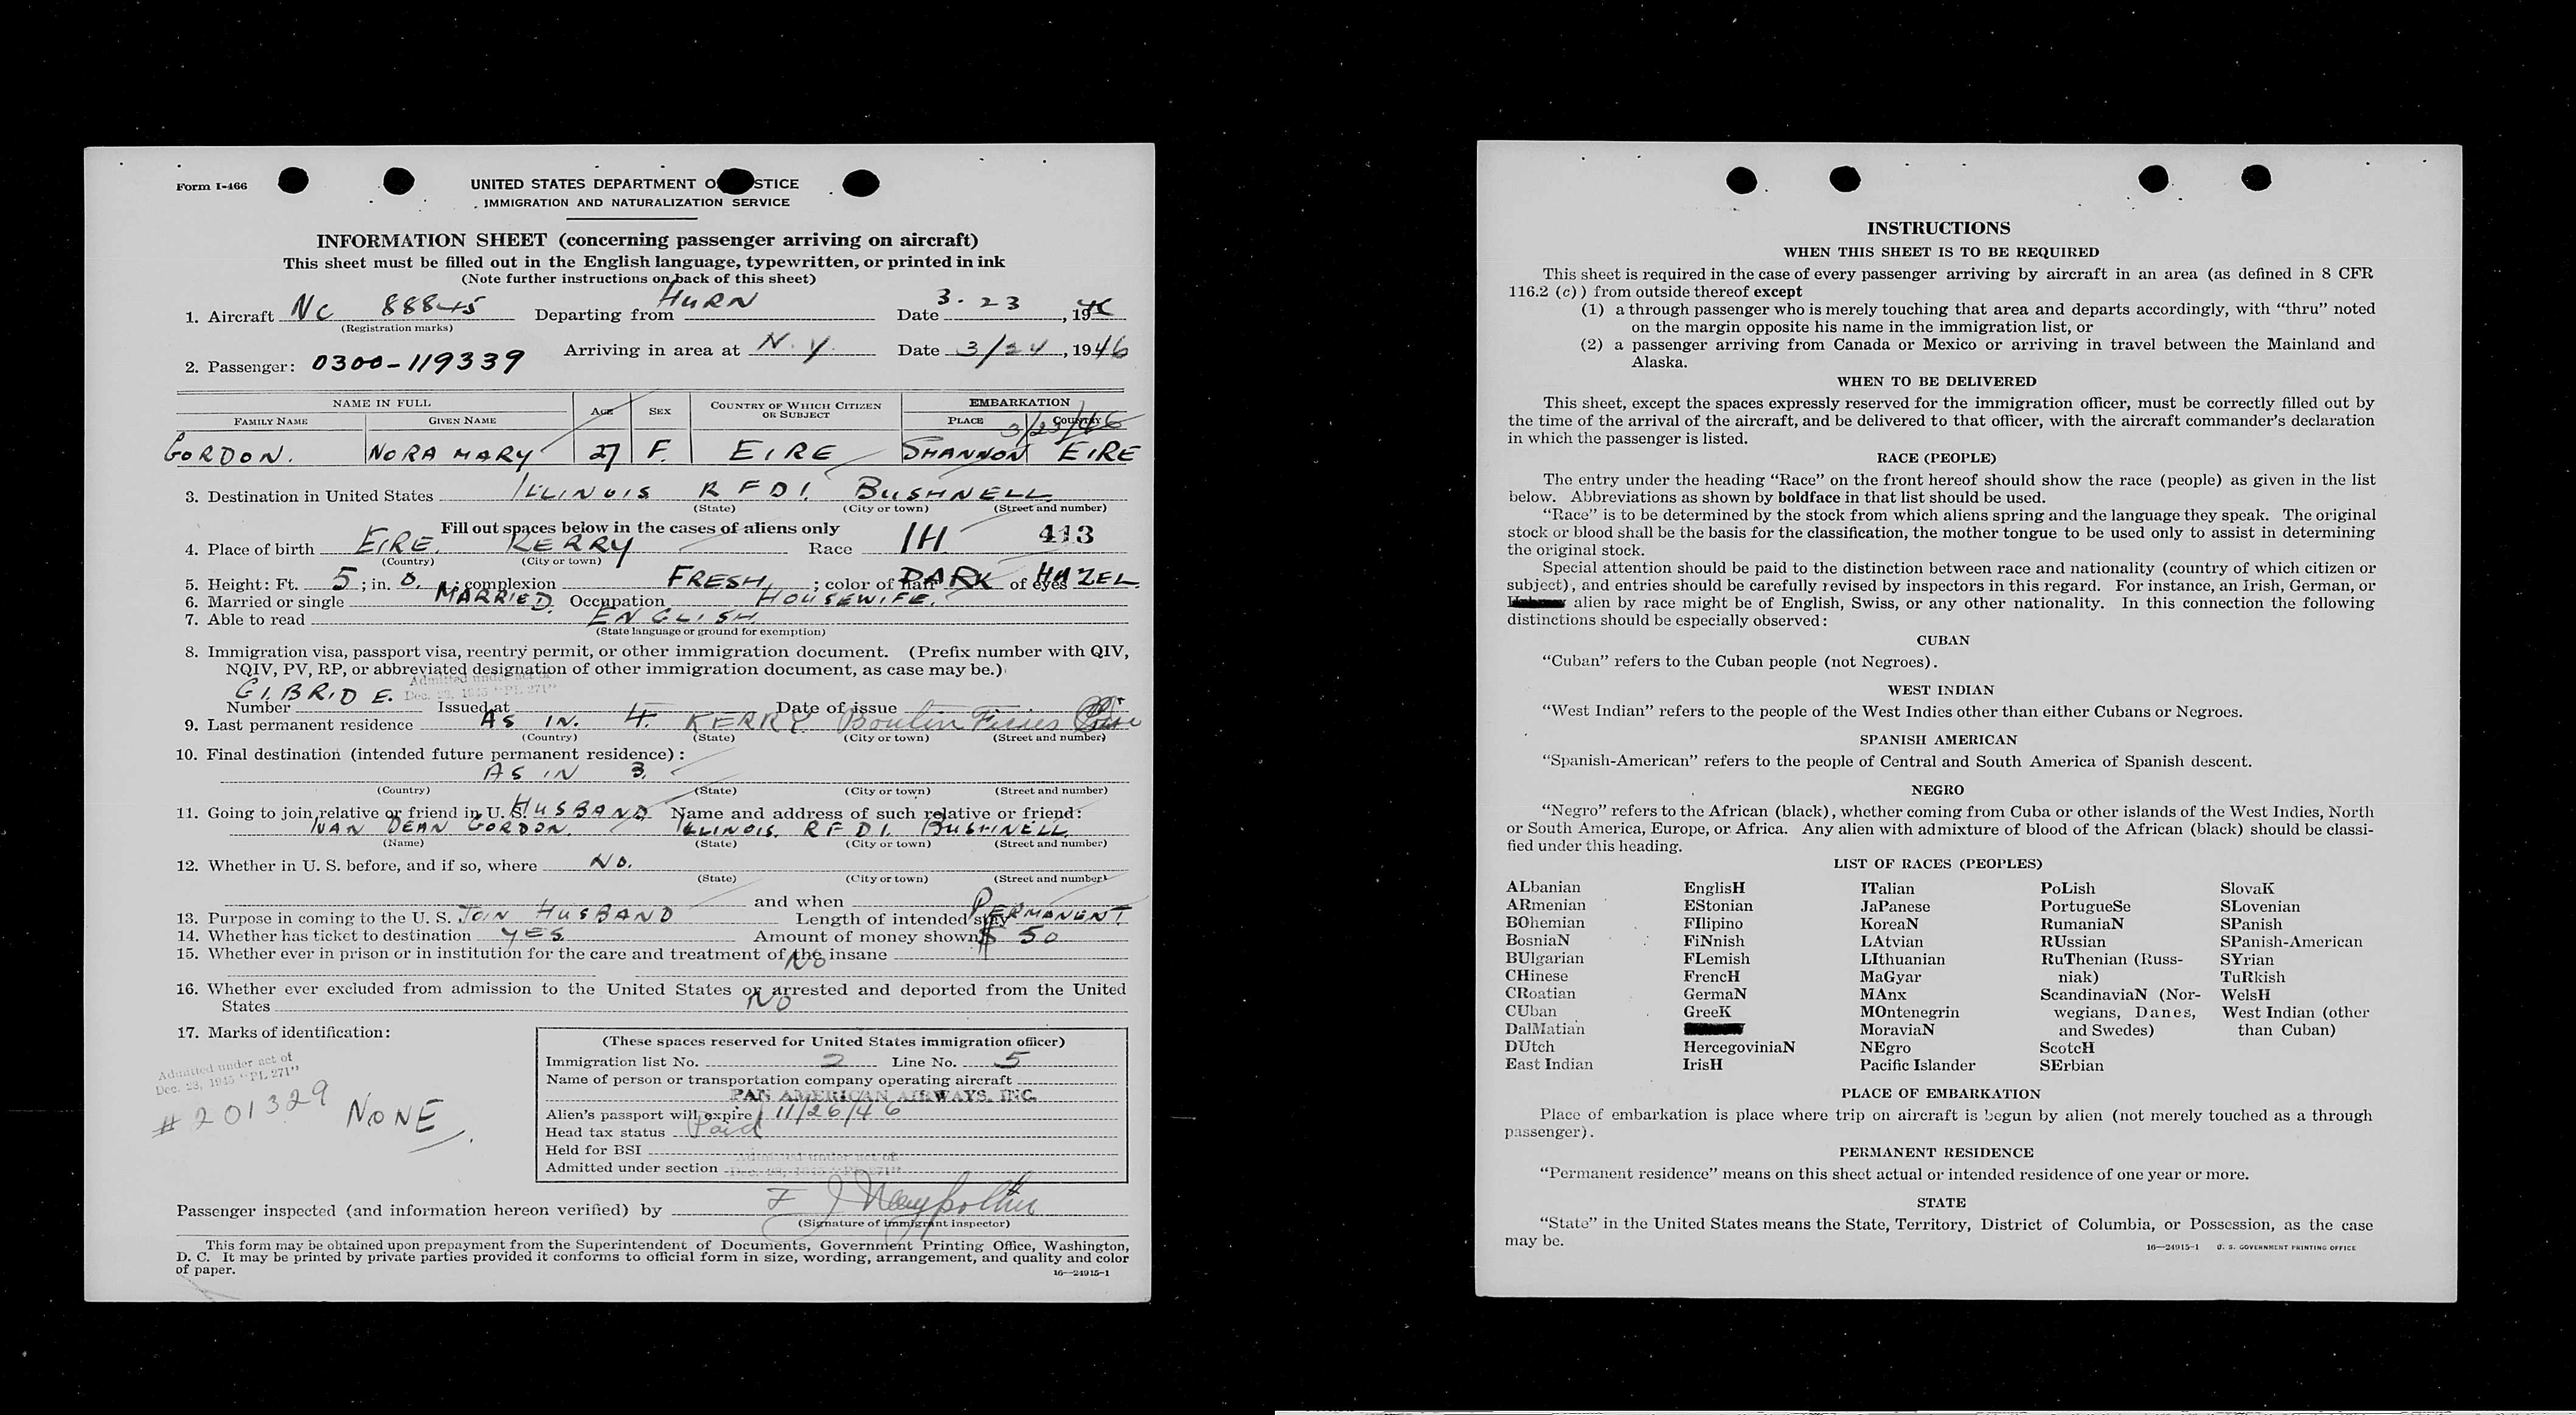 Form I-466
UNITED STATES DEPARTMENT O STICE
IMMIGRATION AND NATURALIZATION SERVICE
INFORMATION SHEET (concerning passenger arriving on aircraft)
This sheet must be filled out in the English language, typewritten, or printed in ink
(Note further instructions on back of this sheet)
1. Aircraft NC 88845 Departing from HURN Date 3.23, 1946
(Registration marks)
Arriving in area at N.Y. Date 3/24, 1946
2. Passenger: 0300-119339
NAME IN FULL AGE SEX COUNTRY OF WHICH CITIZEN OR SUBJECT EMBARKATION
FAMILY NAME GIVEN NAME PLACE COUNTRY
3/23/46
GORDON. NORA MARY 27 F. EIRE SHANNON EIRE
3. Destination in United States ILLINOIS RFD1. BUSHNELL
(State) (City or town) (Street and number)
Fill out spaces below in the cases of aliens only
4. Place of birth EIRE. KERRY Race IH 413
(Country) (City or town)
5. Height: Ft. 5; in. 0.; complexion FRESH; color of hair DARK of eyes HAZEL
6. Married or single MARRIED. Occupation HOUSEWIFE.
7. Able to read ENGLISH
(State language or ground for exemption)
8. Immigration visa, passport visa, reentry permit, or other immigration document. (Prefix number with QIV,
NQIV, PV, RP, or abbreviated designation of other immigration document, as case may be.)
Admitted under act of
Dec. 28, 1945 "PL 271"
Number G.I. BRIDE. Issued at Date of issue
9. Last permanent residence AS IN. 4. KERRY
(Country) (State) (City or town) (Street and number)
10. Final destination (intended future permanent residence):
AS IN 3.
(Country) (State) (City or town) (Street and number)
11. Going to join relative or friend in U. S. HUSBAND Name and address of such relative or friend:
IVAN DEAN GORDON ILLINOIS. RFD1. BUSHNELL
(Name) (State) (City or town) (Street and number)
12. Whether in U. S. before, and if so, where NO.
(State) (City or town) (Street and number)
and when
13. Purpose in coming to the U. S. JOIN HUSBAND Length of intended stay PERMANENT
14. Whether has ticket to destination YES Amount of money shown $ 50
15. Whether ever in prison or in institution for the care and treatment of the insane NO
16. Whether ever excluded from admission to the United States or arrested and deported from the United
States NO
17. Marks of identification:
Admitted under act of
Dec. 28, 1945 "PL 271"
#201329 NONE
(These spaces reserved for United States immigration officer)
Immigration list No. 2 Line No. 5
Name of person or transportation company operating aircraft
PAN AMERICAN AIRWAYS, INC.
Alien's passport will expire 11/26/46
Head tax status Paid
Held for BSI
Admitted under section Admitted under act of
Dec. 28, 1945 "PL 271"
Passenger inspected (and information hereon verified) by
(Signature of immigrant inspector)
This form may be obtained upon prepayment from the Superintendent of Documents, Government Printing Office, Washington,
D. C. It may be printed by private parties provided it conforms to official form in size, wording, arrangement, and quality and color
of paper.
16—24915-1
INSTRUCTIONS
WHEN THIS SHEET IS TO BE REQUIRED
This sheet is required in the case of every passenger arriving by aircraft in an area (as defined in 8 CFR
116.2 (c)) from outside thereof except
(1) a through passenger who is merely touching that area and departs accordingly, with "thru" noted
on the margin opposite his name in the immigration list, or
(2) a passenger arriving from Canada or Mexico or arriving in travel between the Mainland and
Alaska.
WHEN TO BE DELIVERED
This sheet, except the spaces expressly reserved for the immigration officer, must be correctly filled out by
the time of the arrival of the aircraft, and be delivered to that officer, with the aircraft commander's declaration
in which the passenger is listed.
RACE (PEOPLE)
The entry under the heading "Race" on the front hereof should show the race (people) as given in the list
below. Abbreviations as shown by boldface in that list should be used.
"Race" is to be determined by the stock from which aliens spring and the language they speak. The original
stock or blood shall be the basis for the classification, the mother tongue to be used only to assist in determining
the original stock.
Special attention should be paid to the distinction between race and nationality (country of which citizen or
subject), and entries should be carefully revised by inspectors in this regard. For instance, an Irish, German, or
alien by race might be of English, Swiss, or any other nationality. In this connection the following
distinctions should be especially observed:
CUBAN
"Cuban" refers to the Cuban people (not Negroes).
WEST INDIAN
"West Indian" refers to the people of the West Indies other than either Cubans or Negroes.
SPANISH AMERICAN
"Spanish-American" refers to the people of Central and South America of Spanish descent.
NEGRO
"Negro" refers to the African (black), whether coming from Cuba or other islands of the West Indies, North
or South America, Europe, or Africa. Any alien with admixture of blood of the African (black) should be classi-
fied under this heading.
LIST OF RACES (PEOPLES)
ALbanian EnglisH ITalian PoLish SlovaK
ARmenian EStonian JaPanese PortugueSe SLovenian
BOhemian FIlipino KoreaN RumaniaN SPanish
BosniaN FiNnish LAtvian RUssian SPanish-American
BUlgarian FLemish LIthuanian RuThenian (Russ- SYrian
CHinese FrencH MaGyar niak) TuRkish
CRoatian GermaN MAnx ScandinaviaN (Nor- WelsH
CUban GreeK MOntenegrin wegians, Danes, West Indian (other
DalMatian MoraviaN and Swedes) than Cuban)
DUtch HercegoviniaN NEgro ScotcH
East Indian IrisH Pacific Islander SErbian
PLACE OF EMBARKATION
Place of embarkation is place where trip on aircraft is begun by alien (not merely touched as a through
passenger).
PERMANENT RESIDENCE
"Permanent residence" means on this sheet actual or intended residence of one year or more.
STATE
"State" in the United States means the State, Territory, District of Columbia, or Possession, as the case
may be.
16—24915-1 U. S. GOVERNMENT PRINTING OFFICE